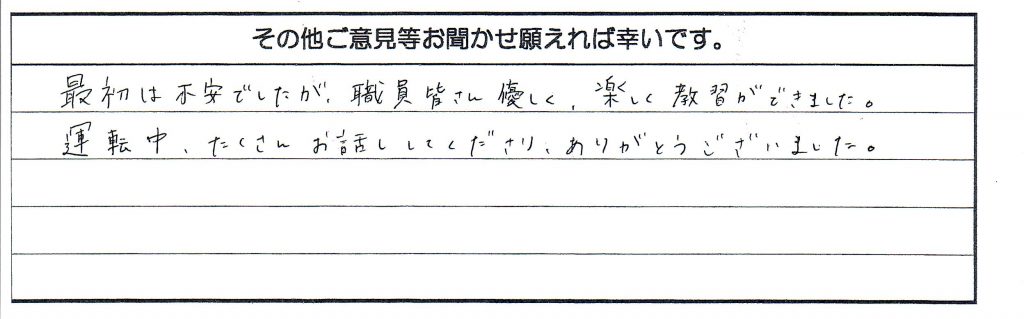 その他ご意見等お聞かせ願えれば幸いです。
最初は不安でしたが、職員皆さん優しく、楽しく教習ができました。
運転中、たくさんお話ししてくださり、ありがとうございました。